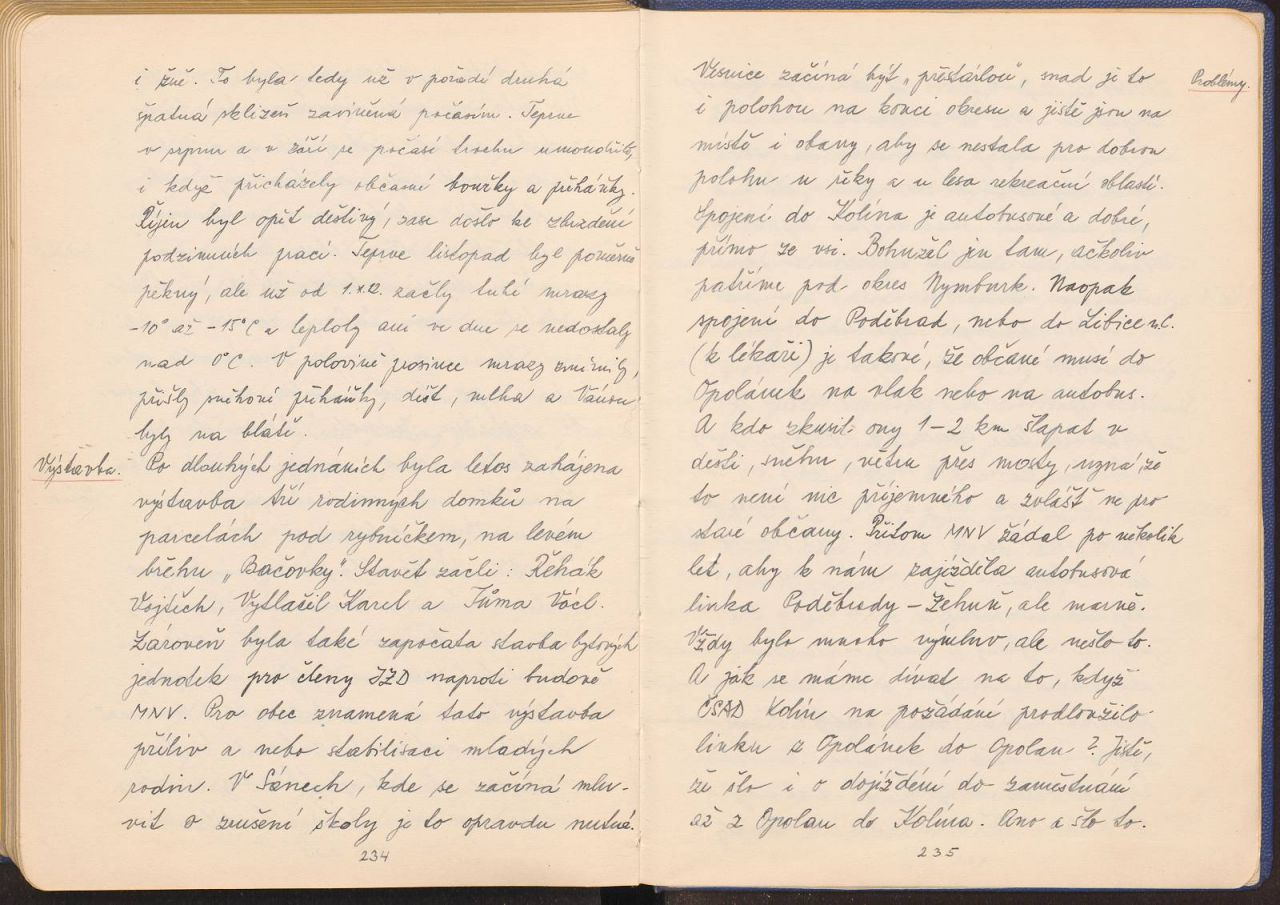 i žně. To byla tedy už v pořadí druhá
špatná sklizeň zaviněná počasím. Teprve
v srpnu a v září se počasí trochu umoudřilo,
i když přicházely občasné bouřky a přeháňky.
Říjen byl opět deštivý, zase došlo ke zbrzdění
podzimních prací. Teprve listopad byl poměrně
pěkný, ale už od 1.XII. začly tuhé mrazy
-10° až -15°C a teploty ani ve dne se nedostaly
nad 0°C. V polovině prosince mrazy zmírnily,
přišly sněhové přeháňky, déšť, mlha a Vánoce
byly na blátě.
Výstavba.
Po dlouhých jednáních byla letos zahájena
výstavba tří rodinných domků na
parcelách pod rybníčkem, na levém
břehu „Bačovky". Stavět začli: Řehák
Vojtěch, Vytlačil Karel a Tůma Vócl.
Zároveň byla také započata stavba bytových
jednotek pro členy JZD naproti budově
MNV. Pro obec znamená tato výstavba
příliv a nebo stabilisaci mladých
rodin. V Sánech, kde se začíná mlu-
vit o zrušení školy je to opravdu nutné.
234
Problémy.
Vesnice začíná být „přestárlou", snad je to
i polohou na konci okresu a jistě jsou na
místě i obavy, aby se nestala pro dobrou
polohu u řeky a u lesa rekreační oblastí.
Spojení do Kolína je autobusové a dobré,
přímo ze vsi. Bohužel jen tam, ačkoliv
patříme pod okres Nymburk. Naopak
spojení do Poděbrad, nebo do Libice n.C.
(k lékaři) je takové, že občané musí do
Opolánek na vlak nebo na autobus.
A kdo zkusil ony 1-2 km šlapat v
dešti, sněhu, větru přes mosty, uzná, že
to není nic příjemného a zvlášť ne pro
staré občany. Přitom MNV žádal po několik
let, aby k nám zajížděla autobusová
linka Poděbrady - Žehuň, ale marně.
Vždy bylo mnoho výmluv, ale nešlo to.
A jak se máme dívat na to, když
ČSAD Kolín na požádání prodloužilo
linku z Opolánek do Opolan? Jistě,
že šlo i o dojíždění do zaměstnání
až z Opolan do Kolína. Ano a šlo to.
235